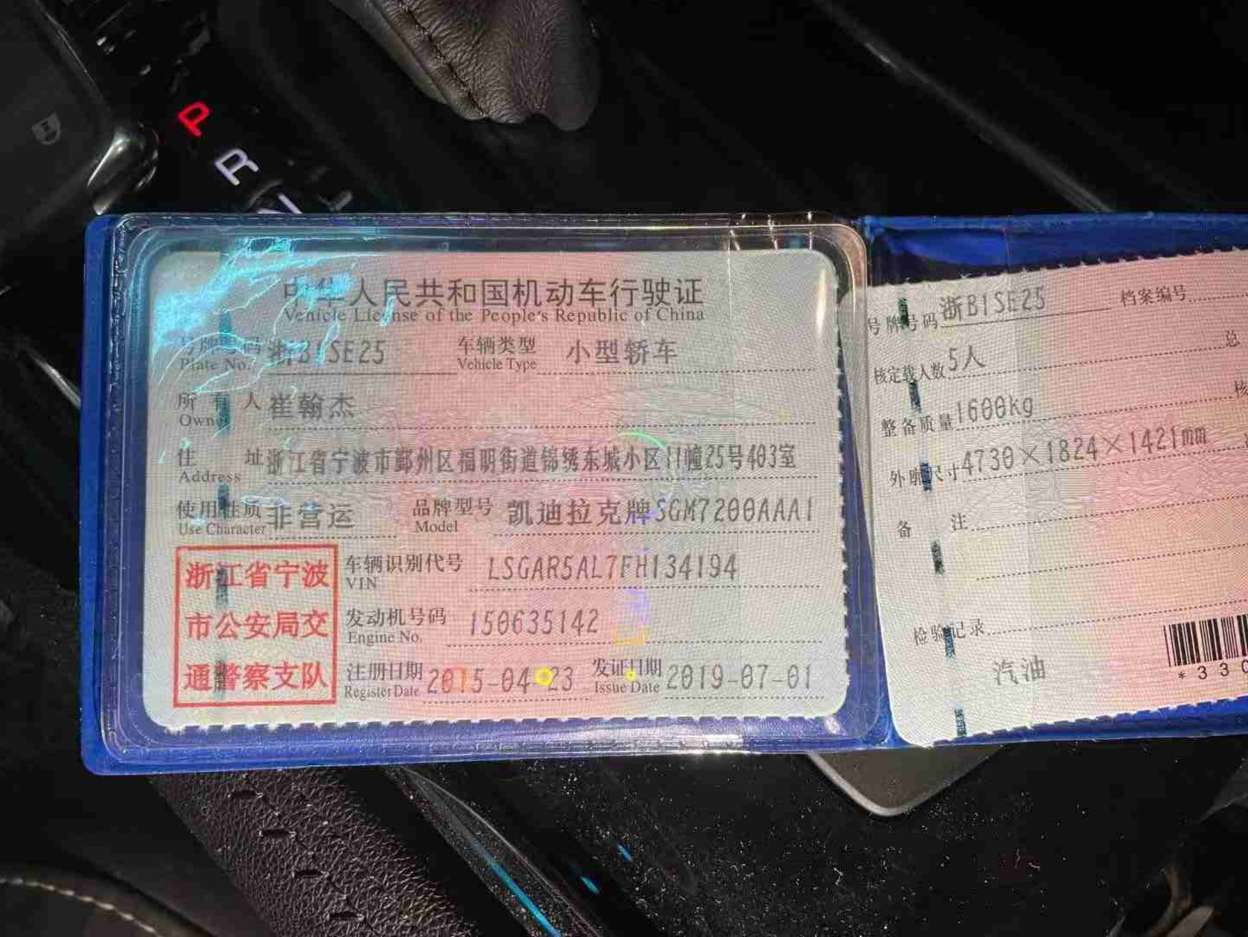 P
R
N
中华人民共和国机动车行驶证
Vehicle License of the People's Republic of China
号牌号码 浙B1SE25 车辆类型 小型轿车
Plate No. Vehicle Type
所有人 崔翰杰
Owner
住址 浙江省宁波市鄞州区福明街道锦绣东城小区11幢25号403室
Address
使用性质 非营运 品牌型号 凯迪拉克牌SGM7200AAA1
Use Character Model
浙江省宁波
市公安局交
通警察支队
车辆识别代号 LSGAR5AL7FH134194
VIN
发动机号码 150635142
Engine No.
注册日期 2015-04-23 发证日期 2019-07-01
Register Date Issue Date
号牌号码 浙B1SE25 档案编号
核定载人数 5人 总
整备质量 1600kg 核
外廓尺寸 4730×1824×1421mm
备注
检验记录
汽油
*330